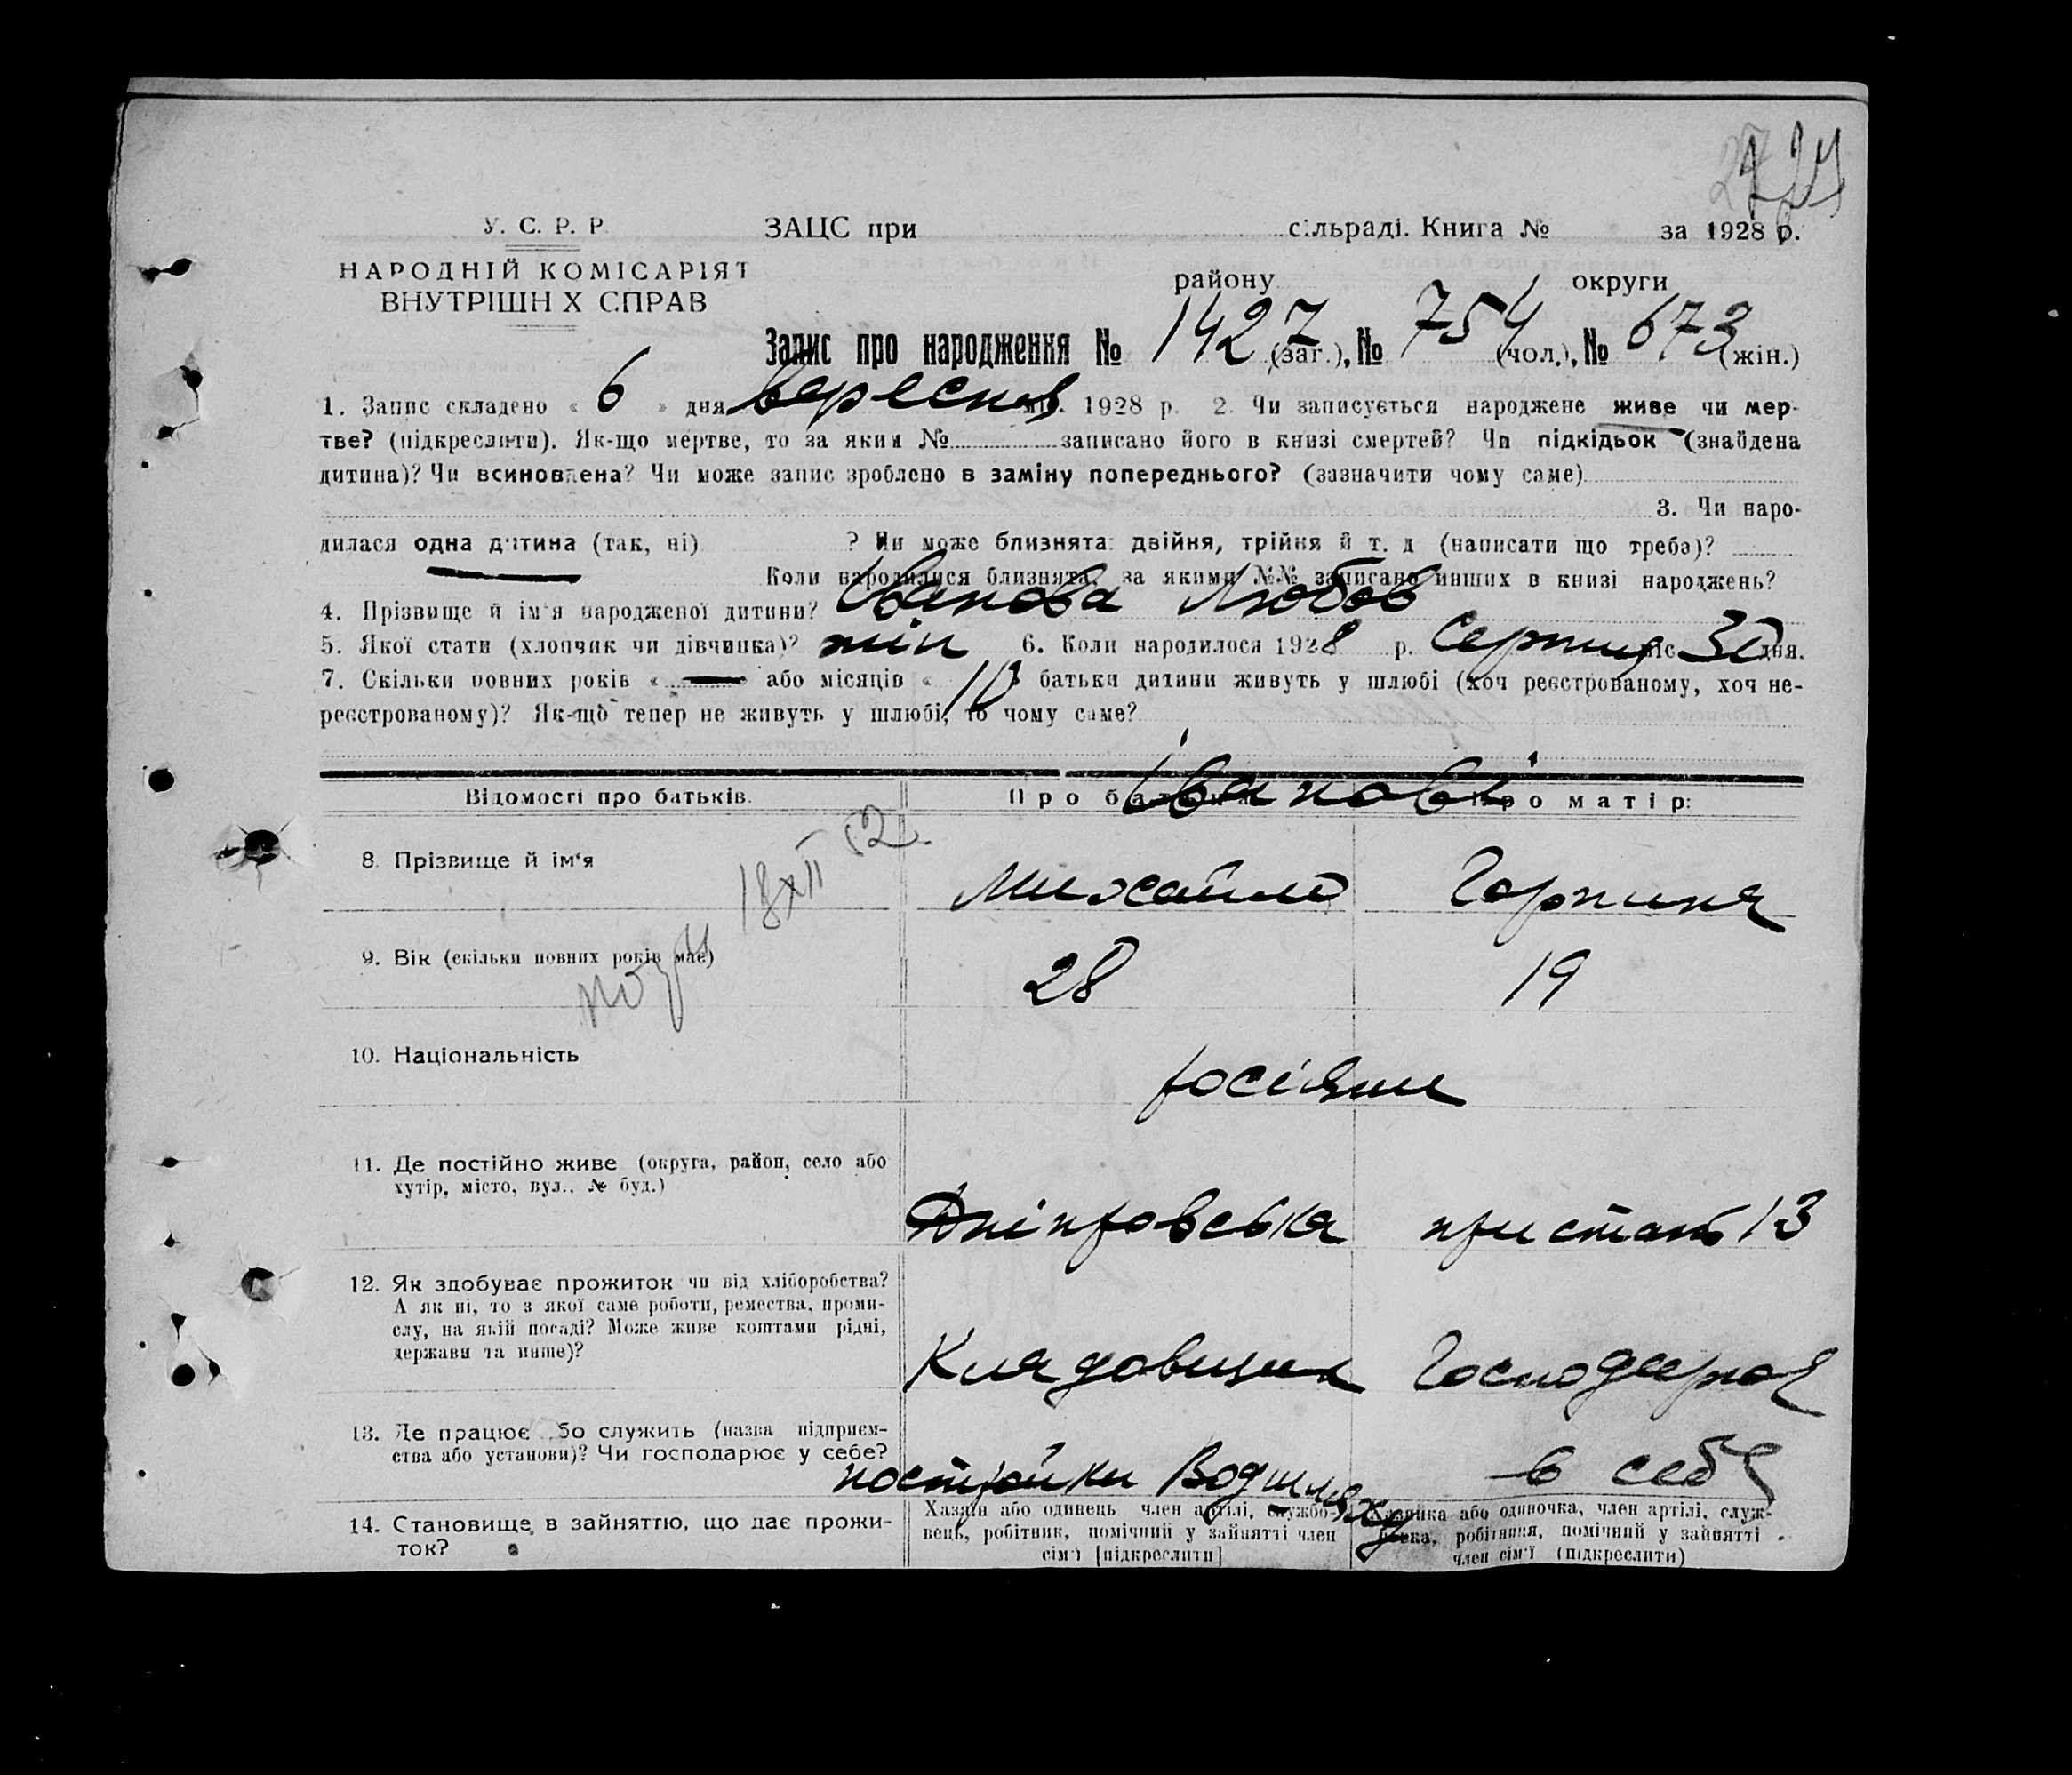 У. С. Р. Р.
НАРОДНІЙ КОМІСАРІЯТ
ВНУТРІШН Х СПРАВ
ЗАЦС при сільраді. Книга № за 1928 р.
району округи
Запис про народження № 1427 (заг.), № 754 (чол.), № 673 (жін.)
1. Запис складено « 6 » дня вересня міс. 1928 р. 2. Чи записується народжене живе чи мер-
тве? (підкреслити). Як-що мертве, то за яким № записано його в книзі смертей? Чи підкідьок (знайдена
дитина)? Чи всиновлена? Чи може запис зроблено в заміну попереднього? (зазначити чому саме)
3. Чи наро-
дилася одна дитина (так, ні) ? Чи може близнята: двійня, трійня й т. д (написати що треба)?
Коли народилися близнята, за якими №№ записано инших в книзі народжень?
4. Прізвище й ім'я народженої дитини? Іванова Любов
5. Якої стати (хлопчик чи дівчинка)? жін 6. Коли народилося 1928 р. Серпня міс 30 дня.
7. Скільки повних років « — » або місяців « 10 » батьки дитини живуть у шлюбі (хоч реєстрованому, хоч не-
реєстрованому)? Як-що тепер не живуть у шлюбі, то чому саме?
Відомості про батьків. Про батька: Про матір:
Іванові
8. Прізвище й ім'я Михайло Горпина
9. Вік (скільки повних років має) 28 19
18 XII 52.
10. Національність росіяни
11. Де постійно живе (округа, район, село або
хутір, місто, вул., № буд.)
Дніпровська пристань 13
12. Як здобуває прожиток чи від хліборобства?
А як ні, то з якої саме роботи, ремества, проми-
слу, на якій посаді? Може живе коштами рідні,
держави та инше)?
Кладовщик Господарює
13. Де працює або служить (назва підприєм-
ства або установи)? Чи господарює у себе?
постройки Водшляху в себе
14. Становище в зайняттю, що дає прожи-
ток?
Хазяїн або одинець член артілі, службо-
вець, робітник, помічний у зайнятті член
сім'ї [підкреслити]
Хазяйка або одиночка, член артілі, служ-
бовка, робітниця, помічний у зайнятті
член сім'ї (підкреслити)